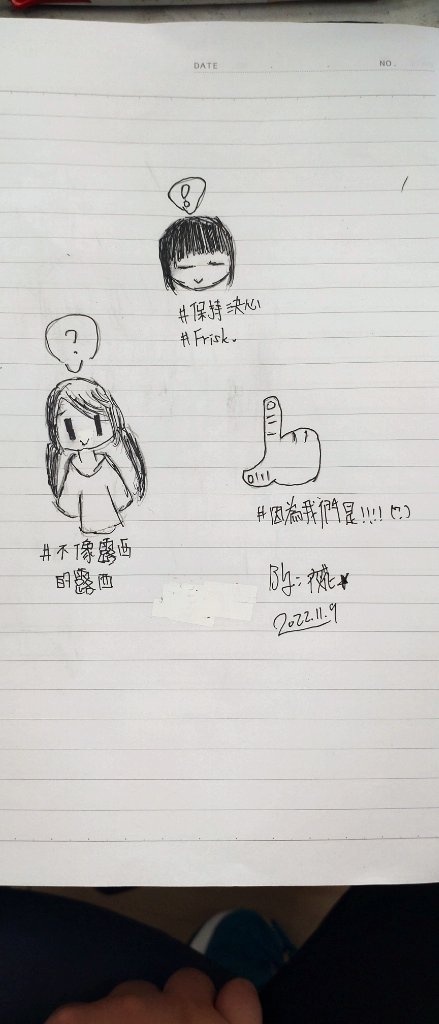 DATE
NO.
#保持決心
#Frisk.
?
#不像露西
的露西
#因為我們是!!!! (?)
By:
2022.11.9